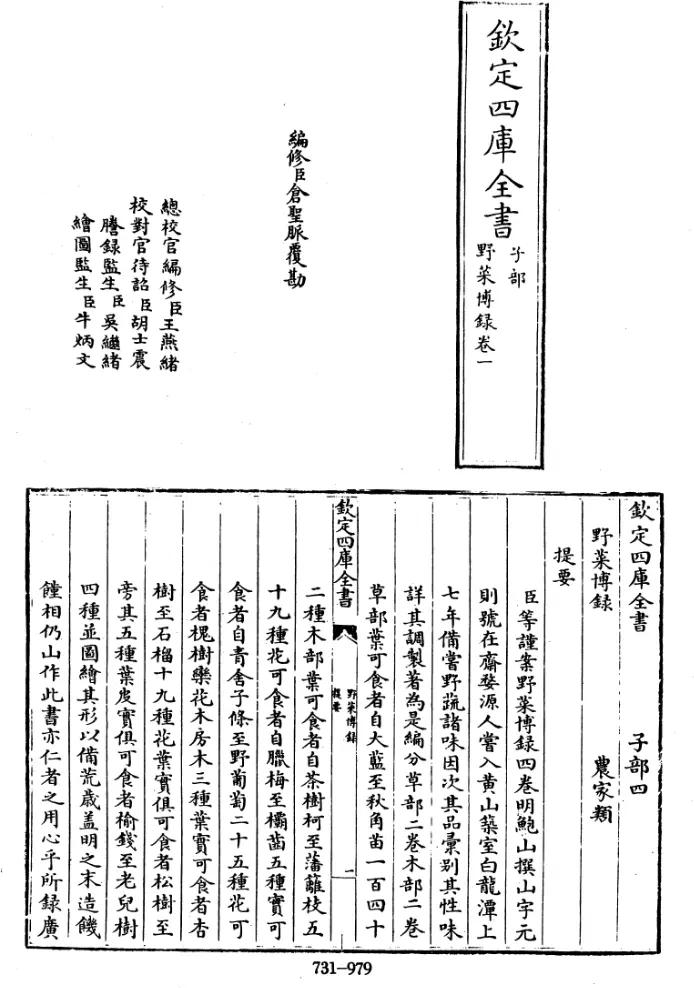 欽定四庫全書
子部
野菜博録卷一
編修臣倉聖脈覆勘
總校官編修臣王燕緒
校對官待詔臣胡士震
謄録監生臣吳繼緒
繪圖監生臣牛炳文
欽定四庫全書 子部四
野菜博録 農家類
提要
臣等謹案野菜博録四卷明鮑山撰山字元
則號在齋婺源人嘗入黄山築室白龍潭上
七年備嘗野蔬諸味因次其品彚别其性味
詳其調製著為是編分草部二卷木部二卷
草部葉可食者自大藍至秋角苗一百四十
欽定四庫全書
野菜博録
提要
一
二種木部葉可食者自茶樹柯至藩蘺枝五
十九種花可食者自臘梅至欛齒五種實可
食者自青舍子條至野葡萄二十五種花可
食者槐樹欒花木房木三種葉實可食者杏
樹至石榴十九種花葉實俱可食者松樹至
旁其五種葉皮實俱可食者榆錢至老兒樹
四種並圖繪其形以備荒歲盖明之末造饑
饉相仍山作此書亦仁者之用心乎所録廣
731-979